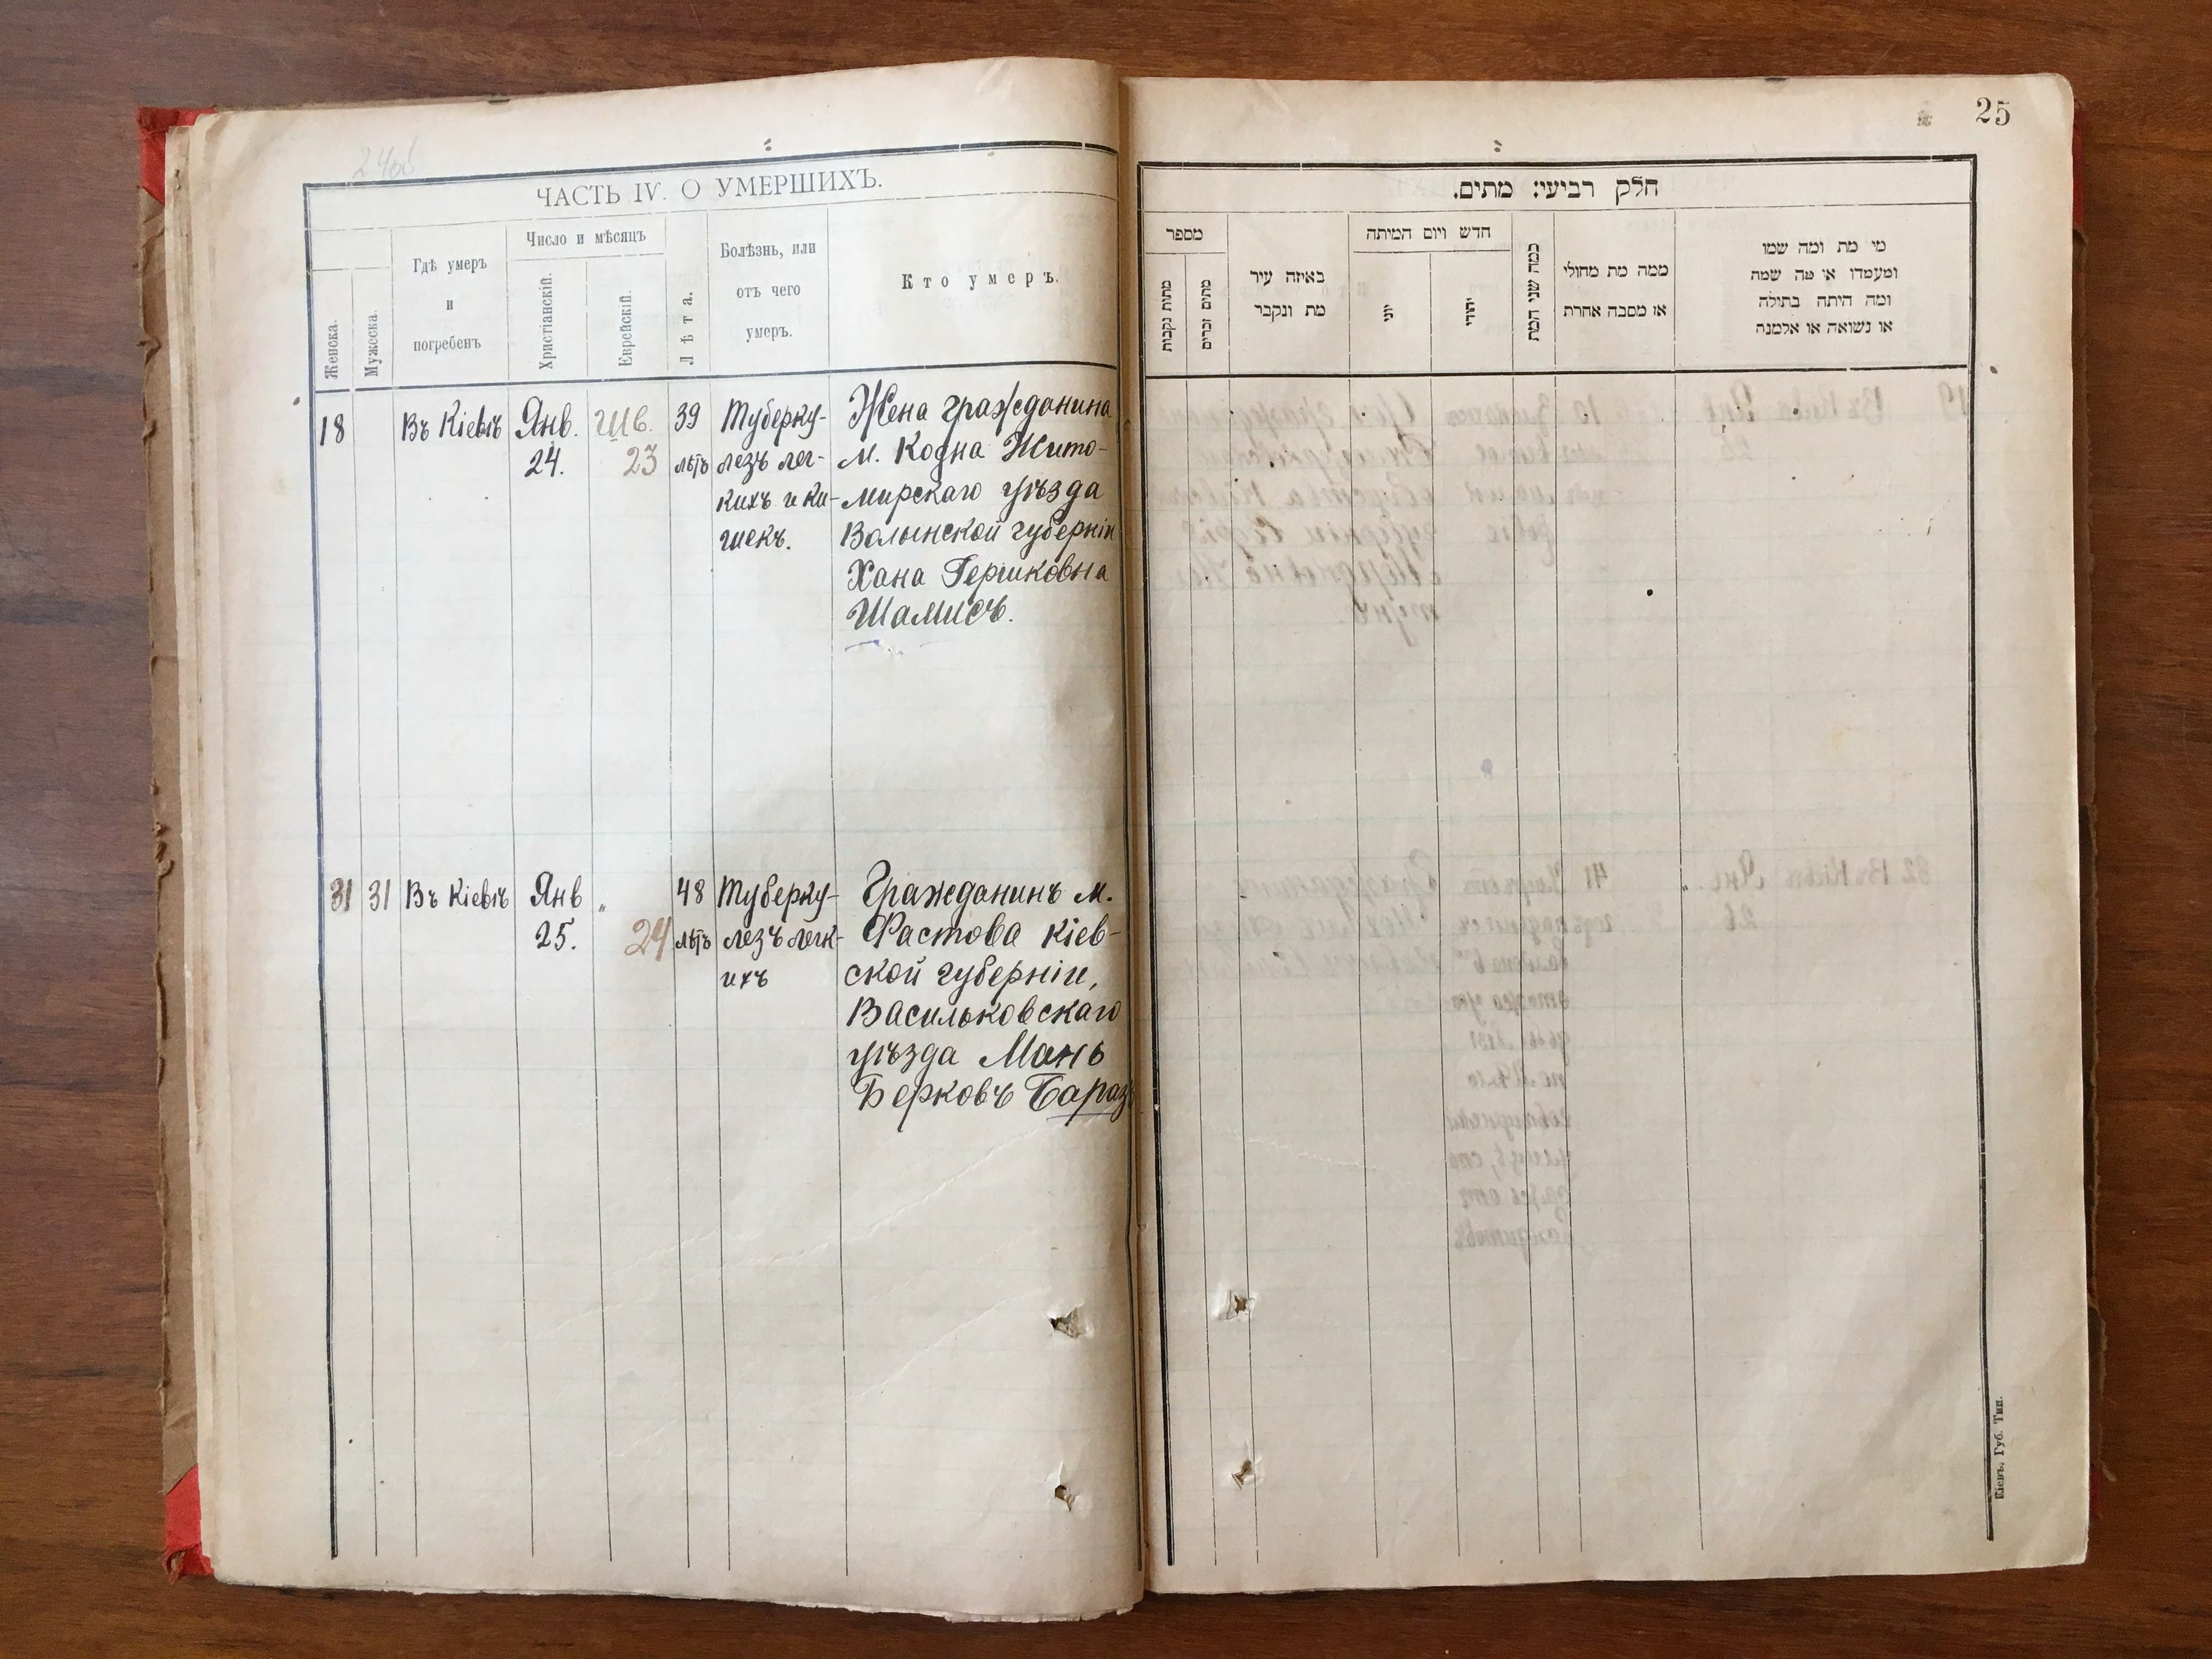 24об
ЧАСТЬ IV. О УМЕРШИХЪ.
Женска.
Мужеска.
Гдѣ умеръ
и
погребенъ
Число и мѣсяцъ
Христіанскій.
Еврейскій.
Лѣта.
Болѣзнь, или
отъ чего
умеръ.
Кто умеръ.
18
Въ Кіевѣ
Янв.
24.
Шв.
23
39
лѣтъ
Туберку-
лезъ лег-
кихъ и ки-
шекъ.
Жена гражданина
м. Кодна Жито-
мирскаго уѣзда
Волынской губерніи
Хана Гершковна
Шамисъ.
31
31
Въ Кіевѣ
Янв
25.
"
24
48
лѣтъ
Туберку-
лезъ легк-
ихъ
Гражданинъ м.
Фастова Кіев-
ской губерніи,
Васильковскаго
уѣзда Мань
Берковъ Бараз
25
חלק רביעי: מתים.
מספר
מתות נקבות
מתים זכרים
באיזה עיר
מת ונקבר
חדש ויום המיתה
יוני
יהודי
כמה שני המת
ממה מת מחולי
או מסבה אחרת
מי מת ומה שמו
ומעמדו או מה שמה
ומה היתה בתולה
או נשואה או אלמנה
Кіевъ, Губ. Тип.